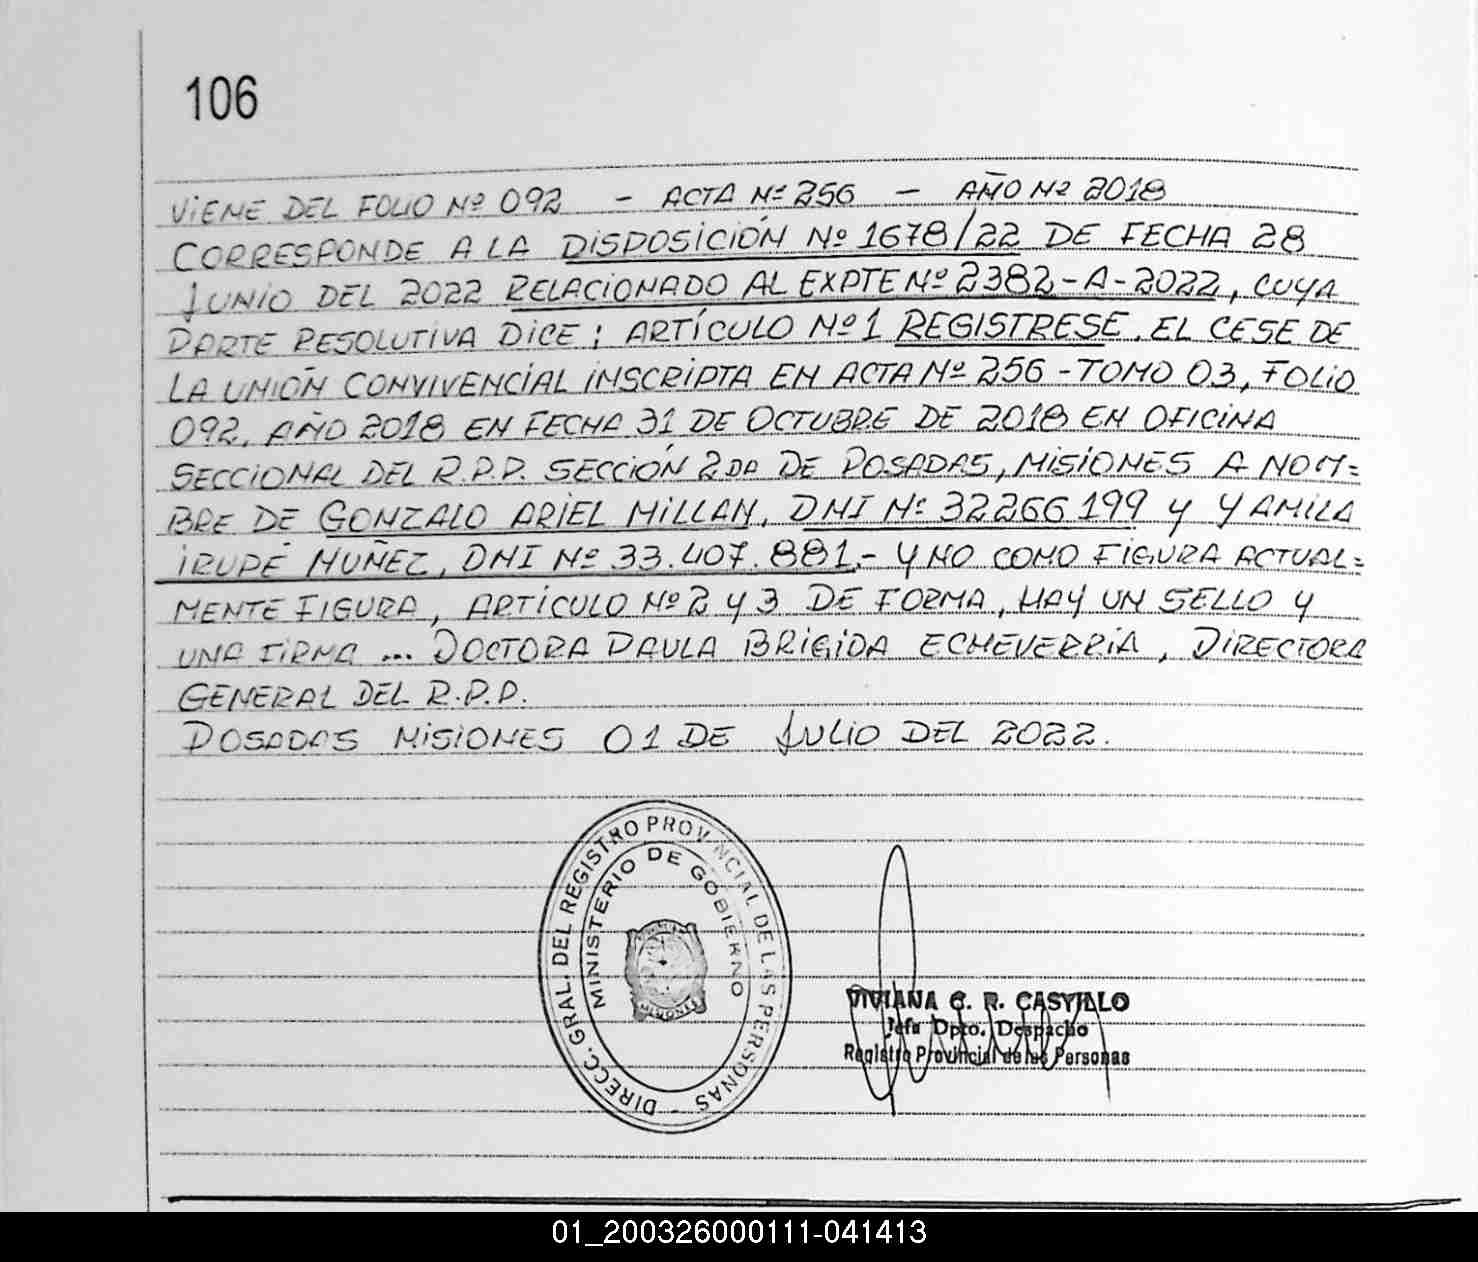 106
VIENE DEL FOLIO Nº 092 - ACTA Nº 256 - AÑO Nº 2018
CORRESPONDE A LA DISPOSICIÓN Nº 1678/22 DE FECHA 28
JUNIO DEL 2022 RELACIONADO AL EXPTE Nº 2382-A-2022, CUYA
PARTE RESOLUTIVA DICE: ARTÍCULO Nº 1 REGISTRESE. EL CESE DE
LA UNIÓN CONVIVENCIAL INSCRIPTA EN ACTA Nº 256 - TOMO 03, FOLIO
092, AÑO 2018 EN FECHA 31 DE OCTUBRE DE 2018 EN OFICINA
SECCIONAL DEL R.P.P. SECCIÓN 2DA DE POSADAS, MISIONES A NOM=
BRE DE GONZALO ARIEL MILLAN, DNI Nº 32266199 Y YAMILA
IRUPÉ MUÑEZ, DNI Nº 33.407.881.- Y NO COMO FIGURA ACTUAL=
MENTE FIGURA, ARTÍCULO Nº 2 Y 3 DE FORMA, HAY UN SELLO Y
UNA FIRMA ... DOCTORA PAULA BRIGIDA ECHEVERRÍA, DIRECTORA
GENERAL DEL R.P.P.
POSADAS MISIONES 01 DE JULIO DEL 2022.
DIRECC. GRAL. DEL REGISTRO PROVINCIAL DE LAS PERSONAS -
MINISTERIO DE GOBIERNO
MISIONES
VIVIANA C. R. CASTILLO
Jefa Dpto. Despacho
Registro Provincial de las Personas
01_200326000111-041413